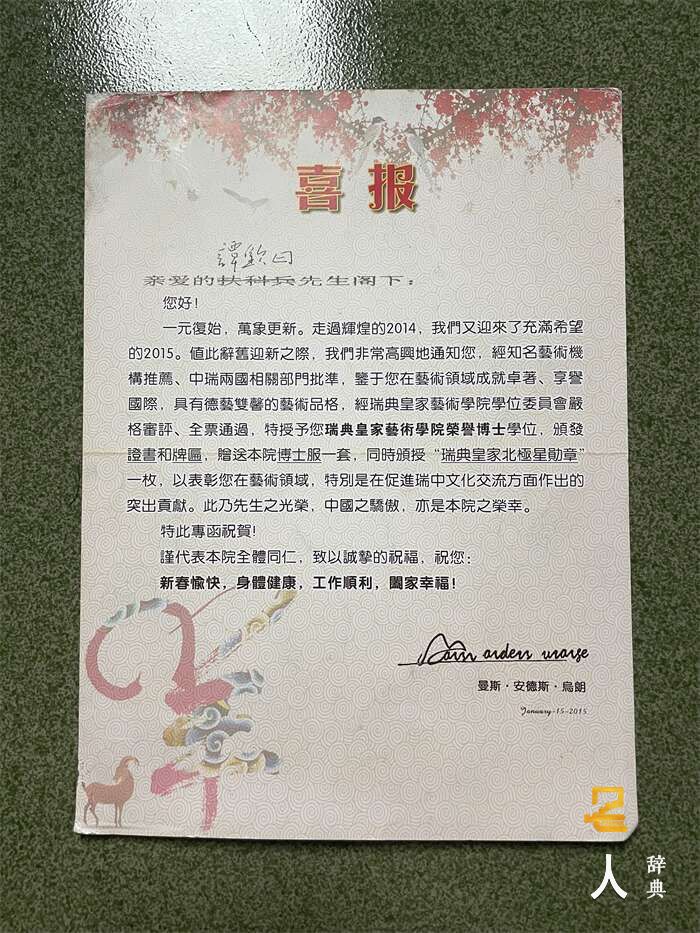 喜报
譚欽曰
亲爱的扶科兵先生阁下：
您好！
一元復始，萬象更新。走過輝煌的2014，我們又迎來了充滿希望
的2015。值此辭舊迎新之際，我們非常高興地通知您，經知名藝術機
構推薦、中瑞兩國相關部門批準，鑒于您在藝術領域成就卓著、享譽
國際，具有德藝雙馨的藝術品格，經瑞典皇家藝術學院學位委員會嚴
格審評、全票通過，特授予您瑞典皇家藝術學院榮譽博士學位，頒發
證書和牌匾，贈送本院博士服一套，同時頒授“瑞典皇家北極星勛章”
一枚，以表彰您在藝術領域，特別是在促進瑞中文化交流方面作出的
突出貢獻。此乃先生之光榮，中國之驕傲，亦是本院之榮幸。
特此專函祝賀！
謹代表本院全體同仁，致以誠摯的祝福，祝您：
新春愉快，身體健康，工作順利，闔家幸福！
曼斯·安德斯·烏朗
January-15-2015
羊
名
人
辞典